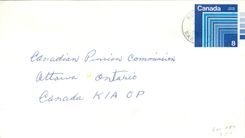 Canada
8
Canadian Pension Commission
Ottawa Ontario
Canada K1A OP